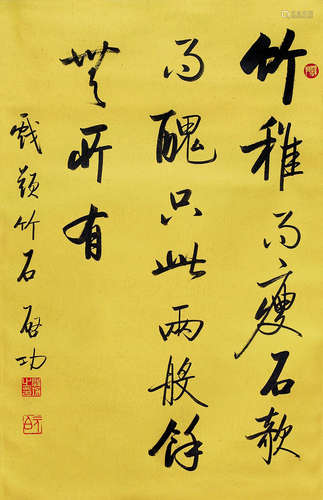 竹稚而瘦石欹
而醜只此兩般餘
無所有
戲題竹石 啓功